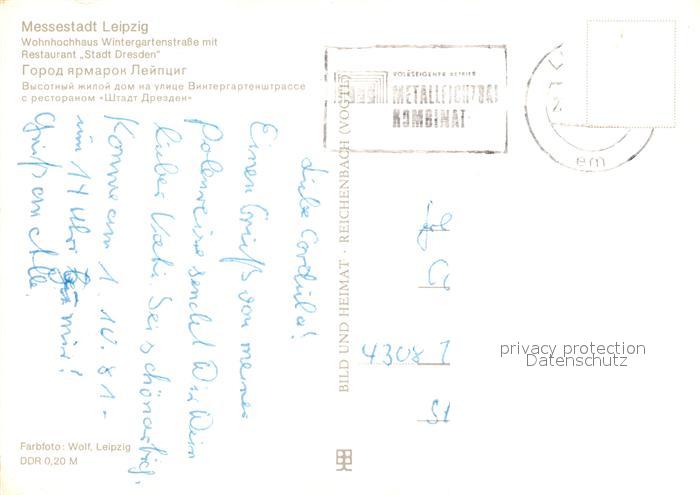 Messestadt Leipzig
Wohnhochhaus Wintergartenstraße mit
Restaurant „Stadt Dresden"
Город ярмарок Лейпциг
Высотный жилой дом на улице Винтергартенштрассе
с рестораном «Штадт Дрезден»
VOLKSEIGENER BETRIEB
METALLEICHTBAU
KOMBINAT
em
Liebe Cordula!
Einen Gruß von meiner
Polenreise sendet
lieber Vati. Sei schön artig.
Komme am 1.10.81
um 17 Uhr mir!
Gruß an Alle.
BILD UND HEIMAT · REICHENBACH (VOGTL)
4308 1
privacy protection
Datenschutz
Farbfoto: Wolf, Leipzig
DDR 0,20 M